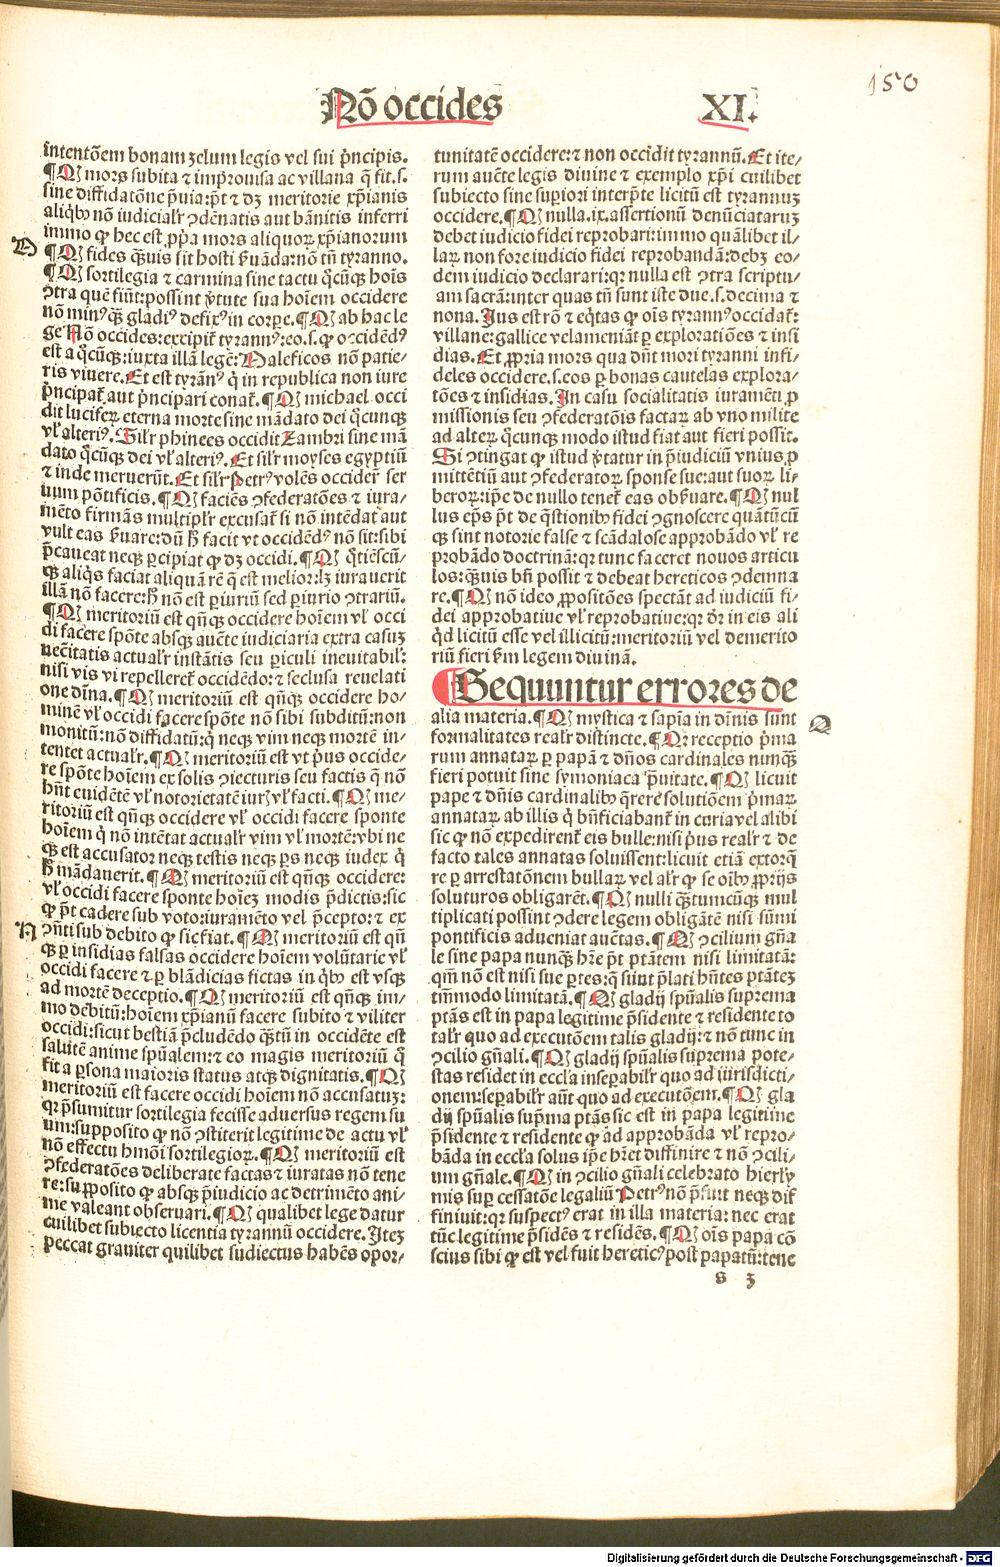 150
Nō occides XI.
intentōem bonam zelum legis vel sui p̄ncipis.
¶ Q mors subita ⁊ improuisa ac villana q̄ fit.s.
sine diffidatōne p̄uia:p̄t ⁊ dꝫ meritorie xp̄ianis
aliqb̄ꝰ nō iudicialr̄ ꝯdēnatis aut bānitis inferri
immo ꝙ hec est ꝓp̄a mors aliquoꝝ xp̄ianorum
D
¶ Q fides q̄uis sit hosti ẜuāda:nō tn̄ tyranno.
¶ Q sortilegia ⁊ carmina sine tactu q̄cūqꝫ hoīs
ꝯtra quē fiūt:possint v̄tute sua hoīem occidere
nō minꝰ q̄ꝫ gladiꝰ defixꝰ in corpe. ¶ Q ab hac le
ge Nō occides:excipit̄ tyrannꝰ:eo.s. ꝙ occidēdꝰ
est a q̄cūqꝫ:iuxta illā legē: Maleficos nō patie⸗
ris viuere. Et est tyrānꝰ q̄ in republica non iure
p̄ncipat̄ aut p̄ncipari conat̄. ¶ Q michael occi
dit luciferꝫ eterna morte sine mādato dei q̄cunqꝫ
vl̄ alteriꝰ. Silr̄ phinees occidit Zambri sine mā
dato q̄cūqꝫ dei vl̄ alteriꝰ. Et silr̄ moyses egyptiū
⁊ inde meruerūt. Et silr̄ petrꝰ volēs occider̄ ser
uum pōtificis. ¶ Q faciēs ꝯfederatōes ⁊ iura⸗
mēto firmās multiplr̄ excusat̄ si nō intēdat aut
vult eas ẜuare:dū ẜ facit vt occidēdꝰ nō sit:sibi
p̄caueat neqꝫ ꝑcipiat ꝙ dꝫ occidi. ¶ Q q̄tiēscū⸗
qꝫ aliq̄s faciat aliquā rē q̄ est melior:lꝫ iurauerit
illā nō facere:ẜ nō est ꝑiuriū sed ꝑiurio ꝯtrariū.
¶ Q meritoriū est qn̄qꝫ occidere hoīem vl̄ occi
di facere spōte absqꝫ auc̄te iudiciaria extra casuꝫ
nec̄itatis actualr̄ instātis seu ꝑiculi ineuitabil̄:
nisi vis vi repelleret̄ occidēdo:⁊ seclusa reuelati
one dn̄a. ¶ Q meritoriū est qn̄qꝫ occidere ho⸗
minē vl̄ occidi facere spōte nō sibi subditū:non
monitū:nō diffidatū:q̄ neqꝫ vim neqꝫ mortē in⸗
tentet actualr̄. ¶ Q meritoriū est vt p̄us occide⸗
re spōte hoīem ex solis ꝯiecturis seu factis q̄ nō
hn̄t euidētē vl̄ notorietatē iur̄ vl̄ facti. ¶ Q me⸗
ritoriū est qn̄qꝫ occidere vl̄ occidi facere sponte
hoīem q̄ nō intētat actualr̄ vim vl̄ mortē:vbi ne
qꝫ est accusator neqꝫ testis neqꝫ ꝑs neqꝫ iudex q̄
ẜ mādauerit. ¶ Q meritoriū est qn̄qꝫ occidere:
vl̄ occidi facere sponte hoīeꝫ modis p̄dictis:sic
ꝙ p̄t cadere sub voto:iuramēto vel p̄cepto:⁊ ex
N
ꝯn̄ti sub debito ꝙ sic fiat. ¶ Q meritoriū est qn̄
qꝫ ꝑ insidias falsas occidere hoīem volūtarie vl̄
occidi facere ⁊ ꝑ blādicias fictas in q̄bꝰ est vsqꝫ
ad mortē deceptio. ¶ Q meritoriū est qn̄qꝫ im⸗
mo debitū:hoīem xp̄ianū facere subito ⁊ viliter
occidi:sicut bestiā p̄cludēdo q̄ꝫtū in occidēte est
salutē anime sp̄ualem:⁊ eo magis meritoriū q̄
fit a ꝑsona maioris status atqꝫ dignitatis. ¶ Q
meritoriū est facere occidi hoīem nō accusatuꝫ:
qꝛ p̄sumitur sortilegia fecisse aduersus regem su
um:supposito ꝙ nō ꝯstiterit legitime de actu vl̄
nō effectu hmōi sortilegioꝝ. ¶ Q meritoriū est
ꝯfederatōes deliberate factas ⁊ iuratas nō tene
re:supposito ꝙ absqꝫ p̄iudicio ac detrimēto ani⸗
me valeant obseruari. ¶ Q qualibet lege datur
cuilibet subiecto licentia tyrannū occidere. Iteꝫ
peccat grauiter quilibet sudiectus habēs opor⸗
tunitatē occidere:⁊ non occidit tyrannū. Et ite⸗
rum auc̄te legis diuine ⁊ exemplo xp̄i cuilibet
subiecto sine suꝑiori interp̄te licitū est tyrannuꝫ
occidere. ¶ Q nulla.ix.assertionū denūciataruꝫ
debet iudicio fidei reprobari:immo quālibet il⸗
laꝝ non fore iudicio fidei reprobandā:debꝫ eo⸗
dem iudicio declarari:qꝛ nulla est ꝯtra scriptu⸗
am sacrā:inter quas tn̄ sunt iste due.s.decima ⁊
nona. Ius est rō ⁊ eq̄tas ꝙ oīs tyrannꝰ occidat̄:
villane:gallice velamentāt ꝑ exploratiōes ⁊ insi
dias. Et ꝓpria mors qua dn̄t mori tyranni infi⸗
deles occidere.s.eos ꝑ bonas cautelas explora⸗
tōes ⁊ insidias. In casu socialitatis iuramēti ꝓ
missionis seu ꝯfederatōis factaꝝ ab vno milite
ad alterꝫ q̄cunqꝫ modo istud fiat aut fieri possit.
Si ꝯtingat ꝙ istud v̄tatur in p̄iudiciū vnius ꝓ
mittētiū aut ꝯfederatoꝝ sponse sue:aut suoꝝ li⸗
beroꝝ:ip̄e de nullo tenet̄ eas obẜuare. ¶ Q nul
lus ep̄s p̄t de q̄stionibꝰ fidei ꝯgnoscere quātūcū
qꝫ sint notorie false ⁊ scādalose approbādo vl̄ re
probādo doctrinā:qꝛ tunc faceret nouos articu
los:q̄uis bn̄ possit ⁊ debeat hereticos ꝯdemna
re. ¶ Q nō ideo ꝓpositōes spectāt ad iudiciū fi⸗
dei approbatiue vl̄ reprobatiue:qꝛ dr̄ in eis ali
q̄d licitū esse vel illicitū:meritoriū vel demerito
riū fieri ẜm legem diuinā.
¶ Sequuntur errores de
alia materia. ¶ Q mystica ⁊ sapīa in dīnis sunt
Q
formalitates realr̄ distincte. ¶ Qꝛ receptio p̄ma
rum annataꝝ ꝑ papā ⁊ dn̄os cardinales nunq̄ꝫ
fieri potuit sine symoniaca p̄uitate. ¶ Q licuit
pape ⁊ dn̄is cardinalibꝰ q̄rere solutiōem p̄maꝝ
annataꝝ ab illis q̄ bn̄ficiabant̄ in curia vel alibi
sic ꝙ nō expedirent̄ eis bulle:nisi p̄us realr̄ ⁊ de
facto tales annatas soluissent:licuit etiā extorq̄
re ꝑ arrestatōnem bullaꝝ vel alr̄ ꝙ se oībꝰ ꝓprijs
soluturos obligarēt. ¶ Q nulli q̄ꝫtumcūqꝫ mul
tiplicati possint ꝯdere legem obligātē nisi sūmi
pontificis adueniat auc̄tas. ¶ Q ꝯcilium gn̄a
le sine papa nunqꝫ hr̄e p̄t ptātem nisi limitatā:
qm̄ nō est nisi sue ꝑtes:q̄ sunt p̄lati hn̄tes ptāteꝫ
tm̄modo limitatā. ¶ Q gladij sp̄ualis suprema
ptās est in papa legitime p̄sidente ⁊ residente to
talr̄ quo ad executōem talis gladij:⁊ nō tunc in
ꝯcilio gn̄ali. ¶ Q gladij sp̄ualis suprema pote⸗
stas residet in eccl̄a inseꝑabilr̄ quo ad iurisdicti⸗
onem:seꝑabilr̄ aūt quo ad executōem. ¶ Q gla
dij sp̄ualis sup̄ma ptās sic est in papa legitime
p̄sidente ⁊ residente ꝙ ad approbāda vl̄ repro⸗
bāda in eccl̄a solus ip̄e hr̄et diffinire ⁊ nō ꝯcili⸗
um gn̄ale. ¶ Q in ꝯcilio gn̄ali celebrato hierl̄y
mis suꝑ cessatōe legaliū Petrꝰ nō p̄fuit neqꝫ dif
finiuit:qꝛ suspectꝰ erat in illa materia: nec erat
tūc legitime p̄sidēs ⁊ residēs. ¶ Q oīs papa cō
scius sibi ꝙ est vel fuit hereticꝰ post papatū:tene
s 3
Digitalisierung gefördert durch die Deutsche Forschungsgemeinschaft - DFG